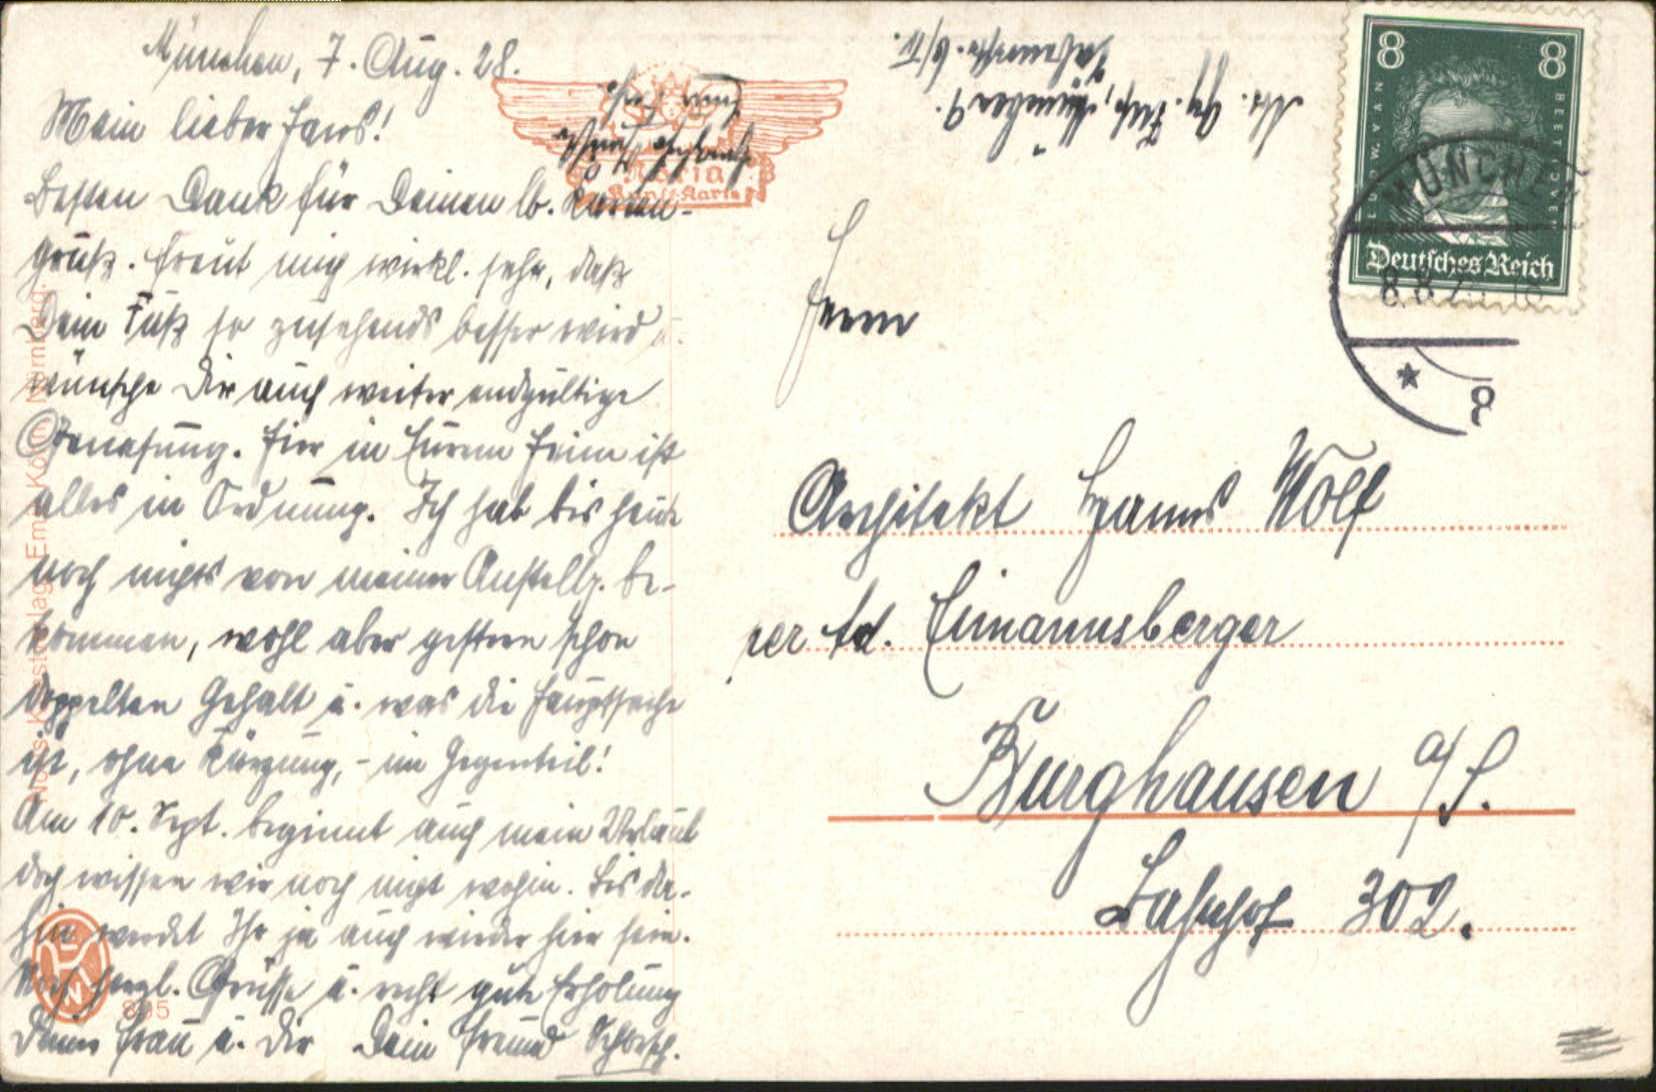 München, 7. Aug. 28.
Mein lieber Hans!
Besten Dank für Deinen lb. Karten-
gruß. Freut mich wirkl. sehr, daß
Dein Fuß so zusehends besser wird u.
wünsche Dir auch weiter endgültige
Genesung. Hier in Eurem Heim ist
alles in Ordnung. Ich hab bis heute
noch nichts von meiner Anstellg. be-
kommen, wohl aber gestern schon
doppelten Gehalt u. was die Hauptsache
ist, ohne Kürzung, - im Gegenteil!
Am 10. Sept. beginnt auch mein Urlaub
doch wissen wir noch nicht wohin. Bis da-
hin werdet Ihr ja auch wieder hier sein.
Noch herzl. Grüsse u. recht gute Erholung
Deiner Frau u. Dir Dein Freund Schorsch.
Maria
Kunst-Karte
München 9.
8
8
LUDW. VAN
BEETHOVEN
Deutsches Reich
MÜNCHEN
8.8.28
* 9
Herrn
Architekt Hanns Wolf
per Ad. Eimannsberger
Burghausen a/S.
Bahnhof 302.
Nürnberg
EKN
895